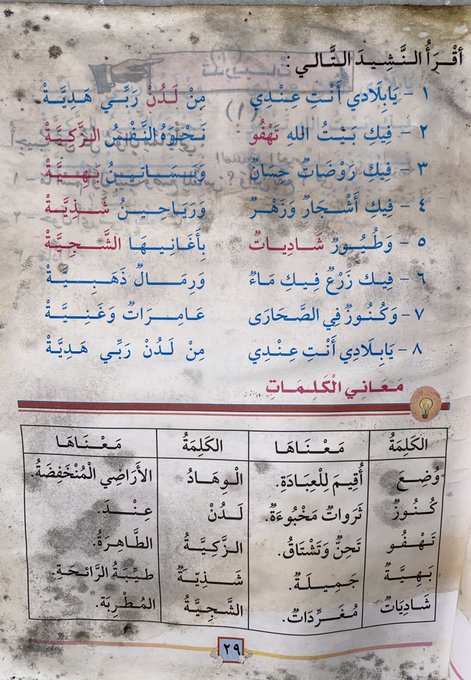 أقْرَأُ النَّشِيدَ التَّالي :
١ - يَابِلَادِي أَنْتِ عِنْدِي مِنْ لَدُنْ رَبِّي هَدِيَّةْ
٢ - فِيكِ بَيْتُ اللهِ تَهْفُو نَحْوَهُ النَّفْسُ الزَّكِيَّةْ
٣ - فِيكِ رَوْضَاتٌ حِسَانٌ وَبَسَاتِينُ بَهِيَّةْ
٤ - فِيكِ أَشْجَارٌ وَزَهْرٌ وَرَيَاحِينُ شَذِيَّةْ
٥ - وَطُيُورٌ شَادِيَاتٌ بِأَغَانِيهَا الشَّجِيَّةْ
٦ - فِيكِ زَرْعٌ فِيكِ مَاءٌ وَرِمَالٌ ذَهَبِيَّةْ
٧ - وَكُنُوزٌ فِي الصَّحَارَى عَامِرَاتٌ وَغَنِيَّةْ
٨ - يَابِلَادِي أَنْتِ عِنْدِي مِنْ لَدُنْ رَبِّي هَدِيَّةْ
مَعَانِي الْكَلِمَاتِ
الكَلِمَةُ مَعْنَاهَا الكَلِمَةُ مَعْنَاهَا
وُضِعَ أُقِيمَ لِلْعِبَادَةِ. الْوِهَادُ الأَرَاضِي الْمُنْخَفِضَةُ.
كُنُوزٌ ثَرَوَاتٌ مَخْبُوءَةٌ. لَدُنْ عِنْدَ.
تَهْفُو تَحِنُّ وَتَشْتَاقُ. الزَّكِيَّةُ الطَّاهِرَةُ.
بَهِيَّةٌ جَمِيلَةٌ. شَذِيَّةٌ طَيِّبَةُ الرَّائِحَةِ.
شَادِيَاتٌ مُغَرِّدَاتٌ. الشَّجِيَّةُ المُطْرِبَةُ.
٢٩